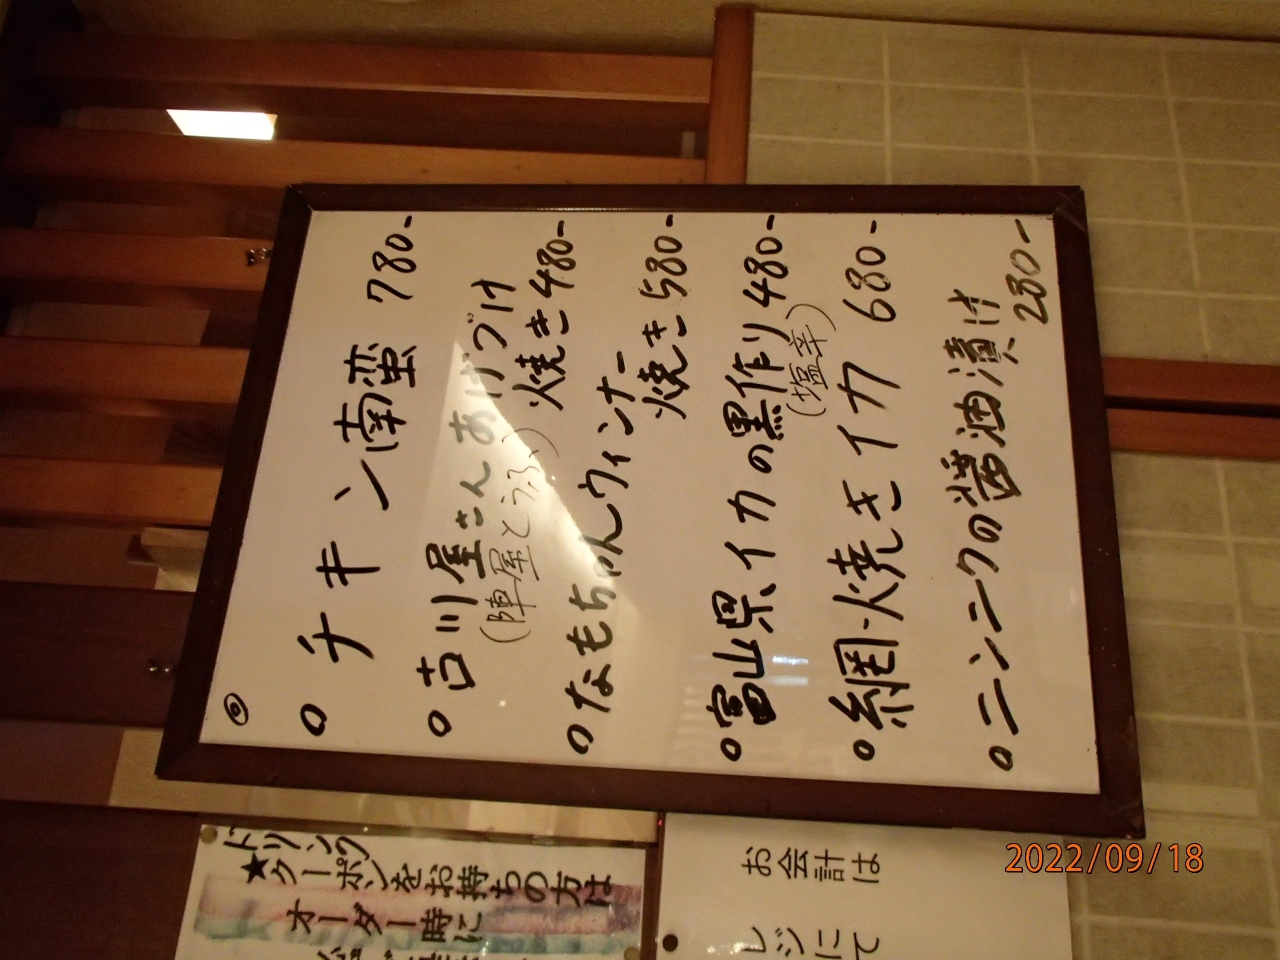 ◎
○チキン南蛮 780-
○古川屋さんあげづけ
(陣屋とうふ) 焼き 480-
○なもちゃんウィンナー
焼き 580-
○富山県、イカの黒作り 480-
(塩辛)
○網焼きイカ 680-
○ニンニクの醤油漬け
280-
ドリンク
★クーポンをお持ちの方は
オーダー時に
お会計は
レジにて
2022/09/18